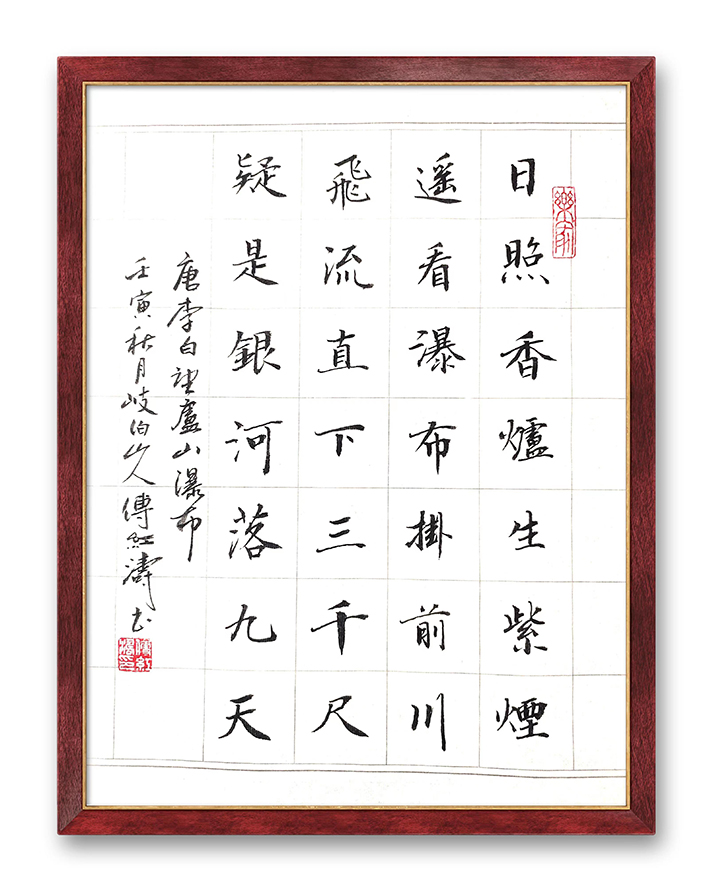 日照香爐生紫煙
遥看瀑布掛前川
飛流直下三千尺
疑是銀河落九天
唐李白望廬山瀑布
壬寅秋月岐伯山人傅紅濤书